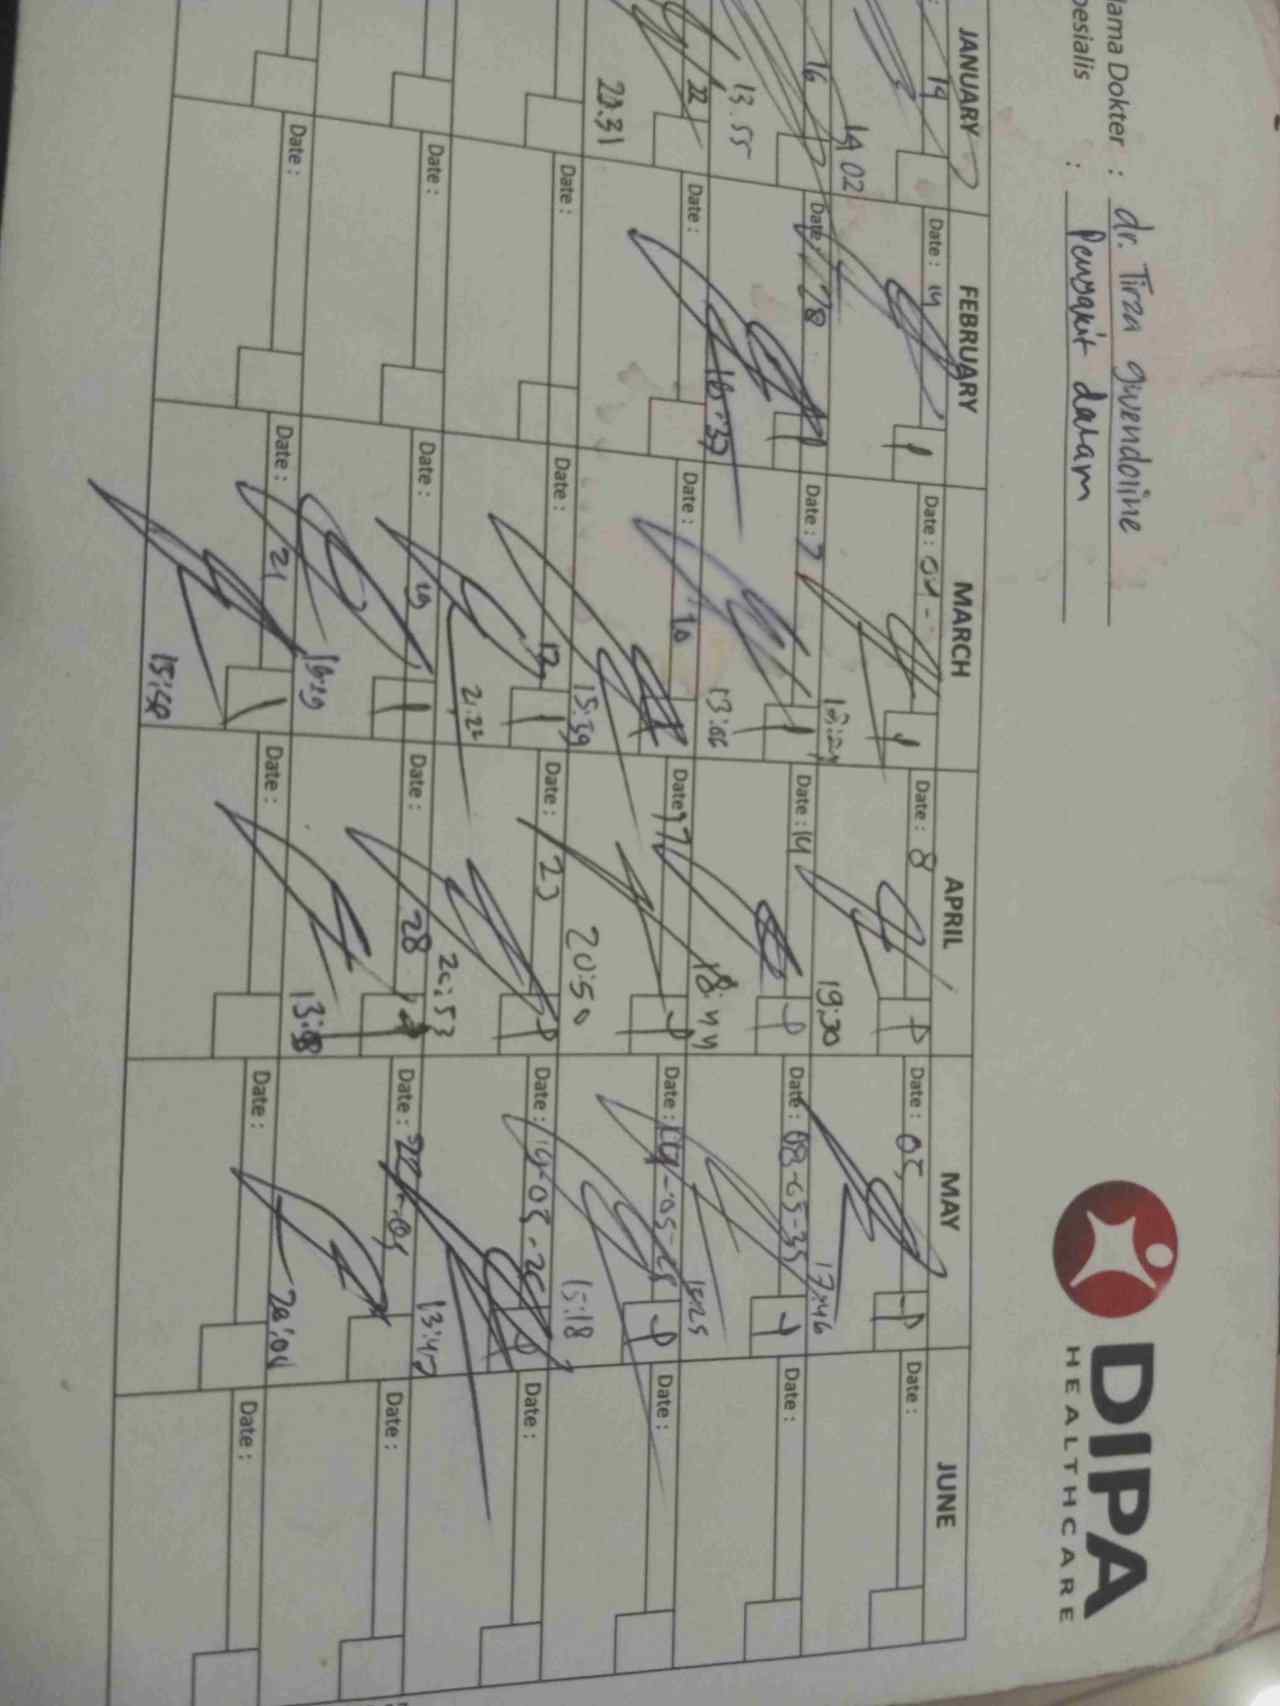 DIPA
HEALTHCARE
ama Dokter : dr. Tirza gwendoline
esialis : Penyakit dalam
JANUARY FEBRUARY MARCH APRIL MAY JUNE
14 Date : 14 Date : 04 - Date : 8 Date : 05 Date :
14 02 19:30 17:46
16 Date : 28 Date : 7 Date : 14 Date : 08-05-25 Date :
13.55 13:06 18:44
22 Date : Date : 10 Date : 17 Date : 14-05-25 Date :
20.31 15:39 20:50 15:18
Date : Date : 12 Date : 23 Date : 19-05-25 Date :
21.22 20:53 13:47
Date : Date : 19 Date : 28 Date : Date :
16:29 13:58 20:04
Date : Date : 21 Date : Date : Date :
15:50